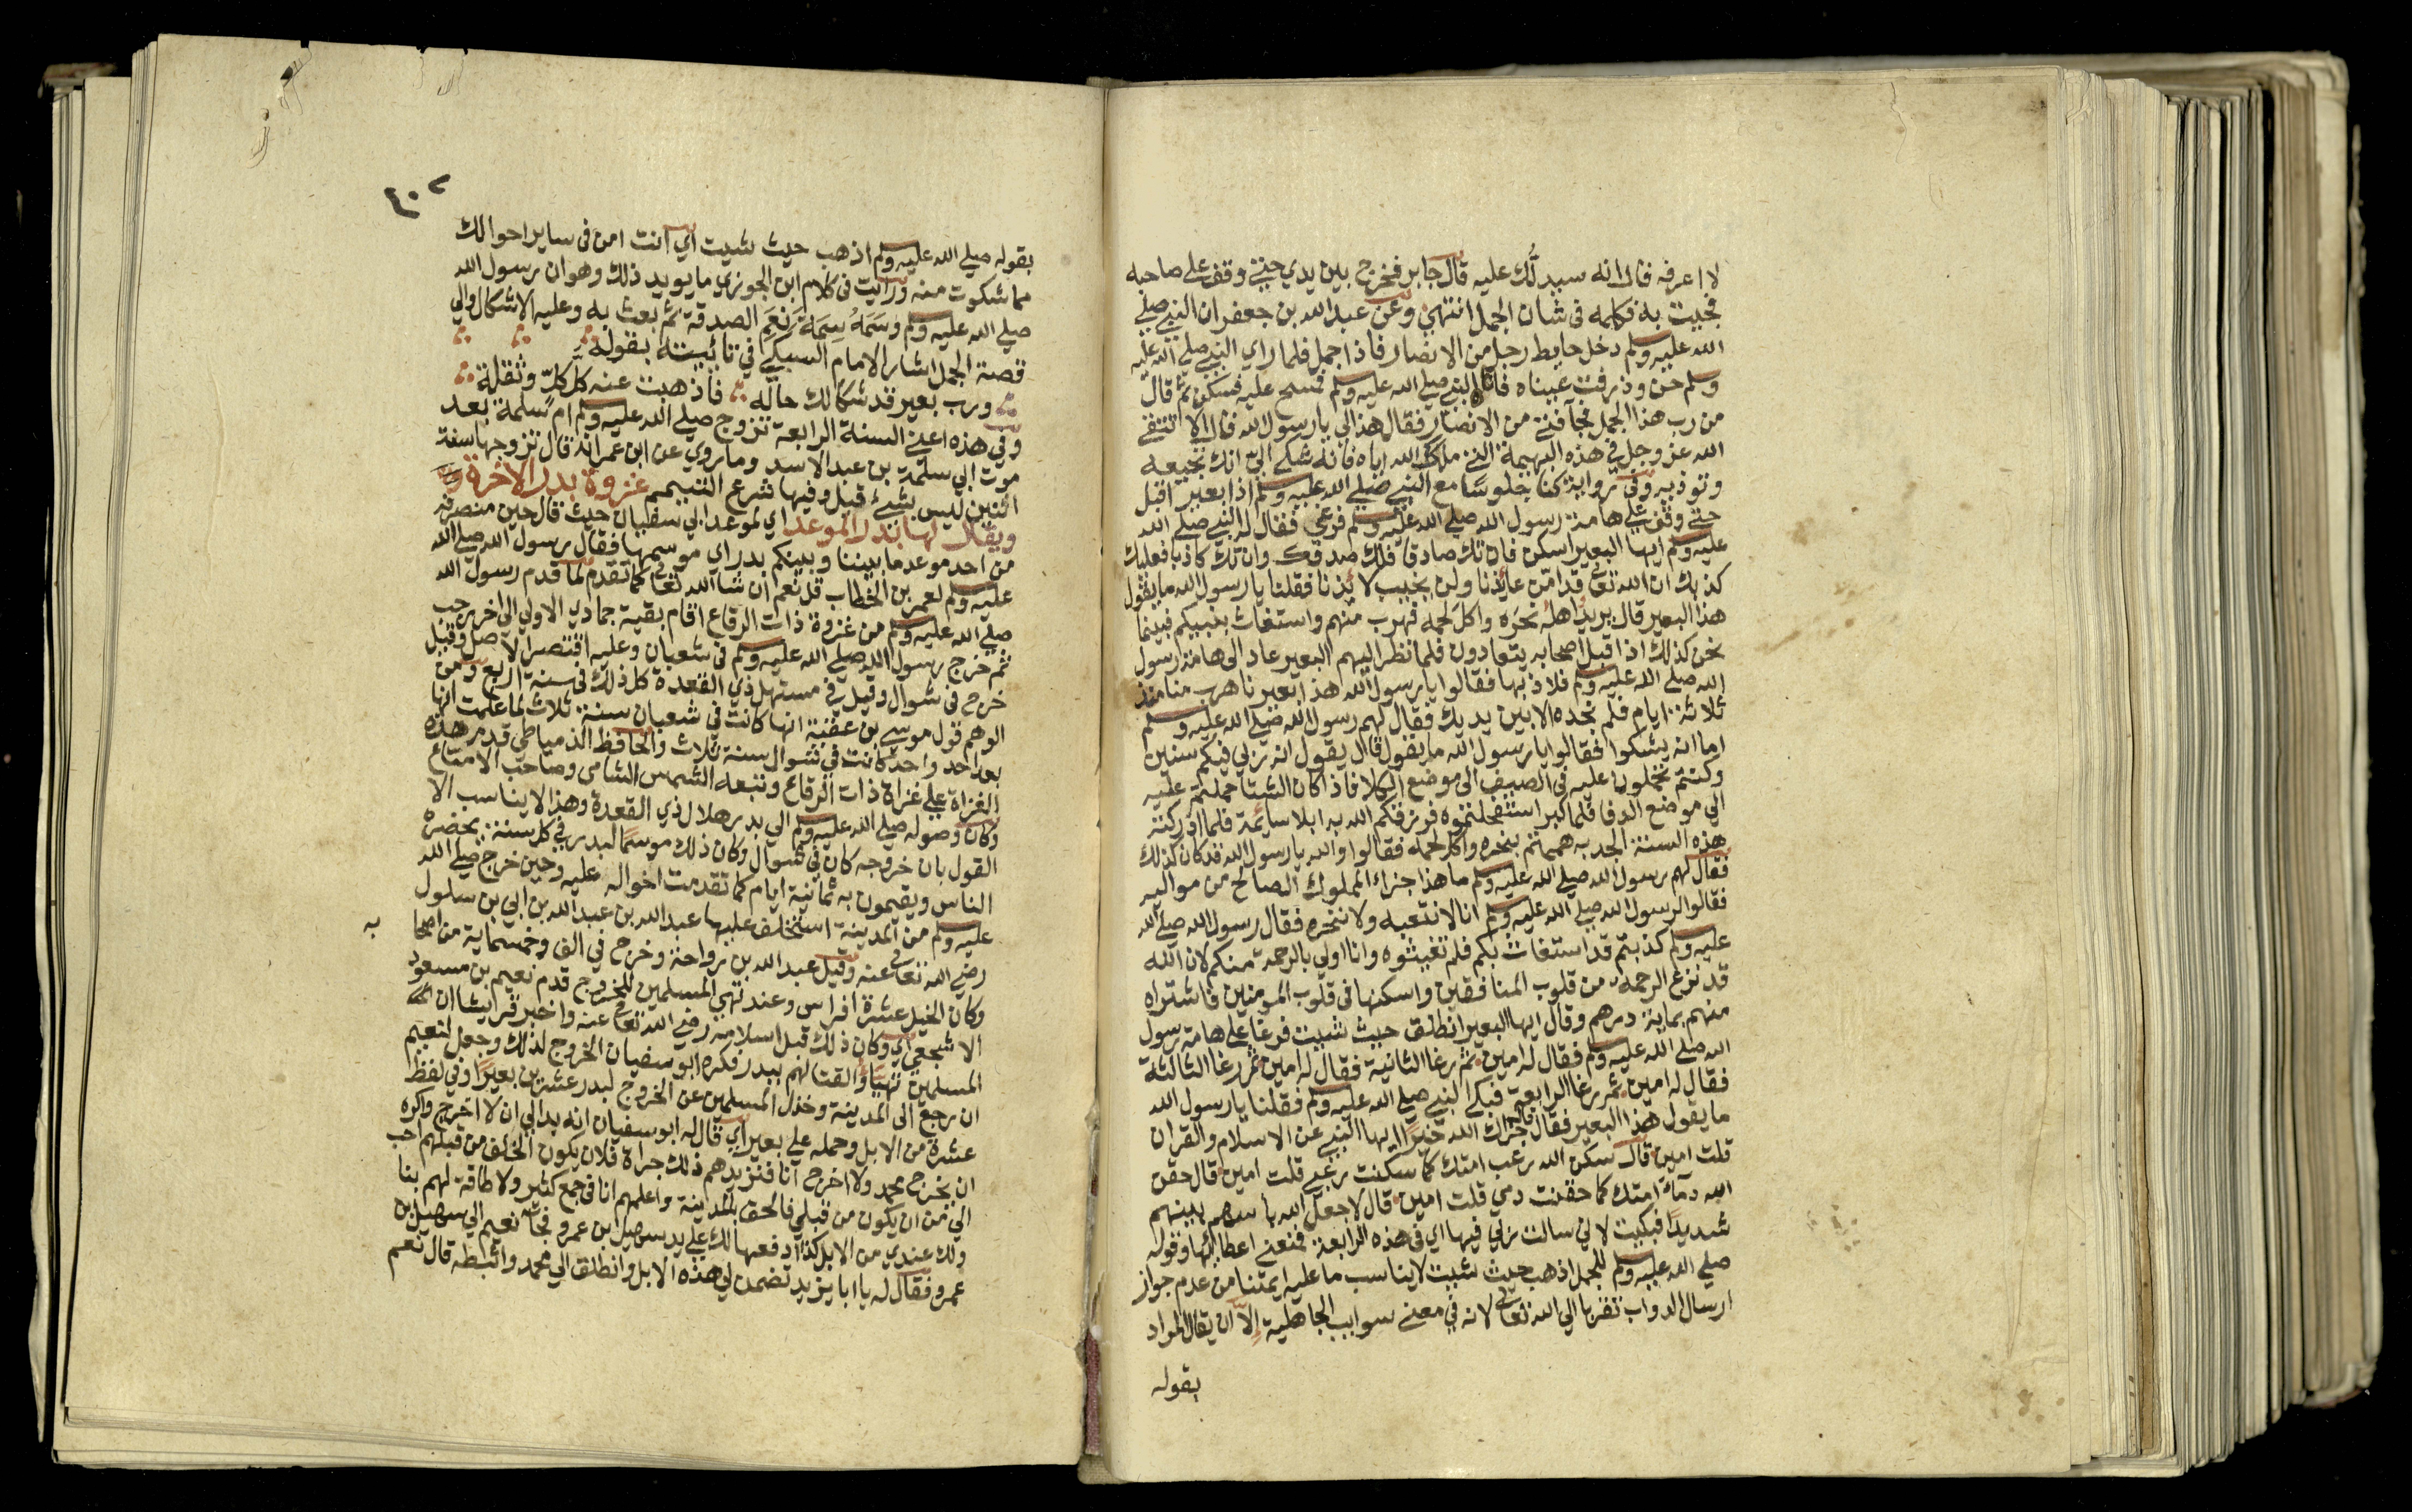 لا اعرفه قال انه سيدلُّك عليه قال جابر فخرج بين يدي حتى وقف على صاحبه
فجيت به فكلمه فى شان الجمل انتهى وعن عبد الله بن جعفر ان النبى صلى
الله عليه وسلم دخل حايط رجل من الانصار فاذا جمل فلما راي النبى صلى الله عليه
وسلم حن وذرفت عيناه فاتاه النبى صلى الله عليه وسلم فمسح عليه فسكن ثم قال
من رب هذا الجمل فجآ فتى من الانصار فقال هذا لي يا رسول الله قال الا تتقي
الله عز وجل في هذه البهيمة التى ملكك الله اياه فانه شكى اليّ انك تجيعه
وتوذيه وفى رواية كنا جلوسًا مع النبى صلى الله عليه وسلم اذا بعير اقبل
حتى وقف على هامة رسول الله صلى الله عليه وسلم فرغى فقال له النبى صلى الله
عليه وسلم ايها البعير اسكن فان تك صادقا فلك صدقك وان تك كاذبا فعليك
كذبك ان الله تعالى قد امّن عائذنا ولن يخيب لائذنا فقلنا يا رسول الله ما يقول
هذا البعير قال يريد اهله نحَره واكل لحمه فهرب منهم واستغاث بنبيكم فبينما
نحن كذلك اذ اقبل اصحابه يتعادون فلما نظر اليهم البعير عاد الى هامة رسول
الله صلى الله عليه وسلم فلاذ بها فقالوا يا رسول الله هذا بعيرنا هرب منا منذ
ثلاثة ايام فلم نجده الا بين يديك فقال لهم رسول الله صلى الله عليه وسلم
اما انه يشكوا فقالوا يا رسول الله ما يقول قال يقول انه رُبي فيكم سنين
وكنتم تحملون عليه فى الصيف الى موضع الكلا فاذا كان الشتا حملتم عليه
الي موضع الدفا فلما كبر استفحلتموه فرزقكم الله به ابلا سايمة فلما ادركته
هذه السنة الجدبه هممتم بنحره واكل لحمه فقالوا والله يا رسول الله قد كان كذلك
فقال لهم رسول الله صلى الله عليه وسلم ما هذا جزاء المملوك الصالح من مواليه
فقالوا لرسول الله صلى الله عليه وسلم انا لا نتعبه ولا ننحره فقال رسول الله صلى الله
عليه وسلم كذبتم قد استغاث بكم فلم تغيثوه وانا اولى بالرحمة منكم لان الله
قد نزع الرحمة من قلوب المنافقين واسكنها فى قلوب المومنين فاشتراه
منهم بماية درهم وقال ايها البعير انطلق حيث شييت فرغا على هامة رسول
الله صلى الله عليه وسلم فقال له امين ثم رغا الثانية فقال له امين ثم رغا الثالثة
فقال له امين ثم رغا الرابعة فبكا النبى صلى الله عليه وسلم فقلنا يا رسول الله
ما يقول هذا البعير فقال قال جزاك الله خيرًا ايها النبى عن الاسلام والقران
قلت امين قال سكن الله رعب امتك كما سكنت رعبى قلت امين قال حقن
الله دمآء امتك كما حقنت دمي قلت امين قال لا جعل الله باسهم بينهم
شديدًا فبكيت لاني سالت ربي فيها اي فى هذه الرابعة فمنعنى اعطائها وقوله
صلى الله عليه وسلم للجمل اذهب حيث شييت لا يناسب ما عليه ايمتنا من عدم جواز
ارسال الدواب تقربا الى الله تعالى لانه في معنى سوايب الجاهلية إلاّ ان يقال المراد
بقوله
٤٠٢
بقوله صلى الله عليه وسلم اذهب حيث شيت اي انت امن فى ساير احوالك
مما شكوت منه ورايت فى كلام ابن الجوزي ما يويد ذلك وهو ان رسول الله
صلى الله عليه وسلم وسَمَهُ سِمَةَ نَعَمِ الصدقة ثم بعث به وعليه الاشكال والى
قصة الجمل اشار الامام السبكي في تائيته بقوله
ورب بعير قد شكا لك حاله فاذهبت عنه كل كَلّ وثقلة
وفى هذه اعنى السنة الرابعة تزوج صلى الله عليه وسلم ام سلمة بعد
موت ابي سلمة بن عبد الاسد وما روي عن ابن عمر انه قال تزوجها سنة
اثنين ليس بشيئ قبل وفيها شرع التيمم غزوة بدر الاخرة
ويقال لها بدر الموعد اي لموعد ابي سفيان حيث قال حين منصرفه
من احد موعد ما بيننا وبينكم بدر اي موسمها فقال رسول الله صلى الله
عليه وسلم لعمر بن الخطاب قل نعم ان شا الله تعالى كما تقدم لما قدم رسول الله
صلى الله عليه وسلم من غزوة ذات الرقاع اقام بقية جمادي الاولى الى اخر رجب
ثم خرج رسول الله صلى الله عليه وسلم فى شعبان وعليه اقتصر الاصل وقيل
خرج فى شوال وقيل في مستهل ذي القعدة كل ذلك فى سنة اربع ومن
الوهم قول موسى بن عقبة انها كانت في شعبان سنة ثلاث لما علمت انها
بعد احد واحد كانت في شوال سنة ثلاث والحافظ الدمياطي قدم هذه
الغزاة على غزاة ذات الرقاع وتبعه الشمس الشامى وصاحب الامتاع
وكان وصوله صلى الله عليه وسلم الى بدر هلال ذي القعدة وهذا لا يناسب الا
القول بان خروجه كان فى شوال وكان ذلك موسمًا لبدر في كل سنة يحضره
الناس ويقيمون به ثمانية ايام كما تقدمت احواله عليه وحين خرج صلى الله
عليه وسلم من المدينة استخلف عليها عبد الله بن عبد الله بن ابي بن سلول
رضى الله تعالى عنه وقيل عبد الله بن رواحة وخرج في الف وخمسماية من اصحا به
وكان الخيل عشرة افراس وعند تهيى المسلمين للخروج قدم نعيم بن مسعود
الاشجعى اي وكان ذلك قبل اسلامه رضى الله تعالى عنه واخبر قريشا ان
المسلمين تهيَّاوا لقتالهم ببدر فكره ابو سفيان الخروج لذلك وجعل لنعيم
ان رجع الى المدينة وخذل المسلمين عن الخروج لبدر عشرين بعيرًا وفي لفظ
عشرة من الابل وحمله على بعير اي قال له ابو سفيان انه بدا لي ان لا اخرج واكره
ان يخرج محمد ولا اخرج انا فنزيدهم ذلك جراة فلان يكون الخلف من قبلهم احب
الي من ان يكون من قبلي فالحق بالمدينة واعلمهم انا فى جمع كثير ولا طاقة لهم بنا
ولك عندي من الابل كذا ادفعها لك على يد سهيل ابن عمرو فجآ نعيم الى سهيل بن
عمرو فقال له يا ابا يزيد تضمن لي هذه الابل وانطلق الى محمد واثبطه قال نعم